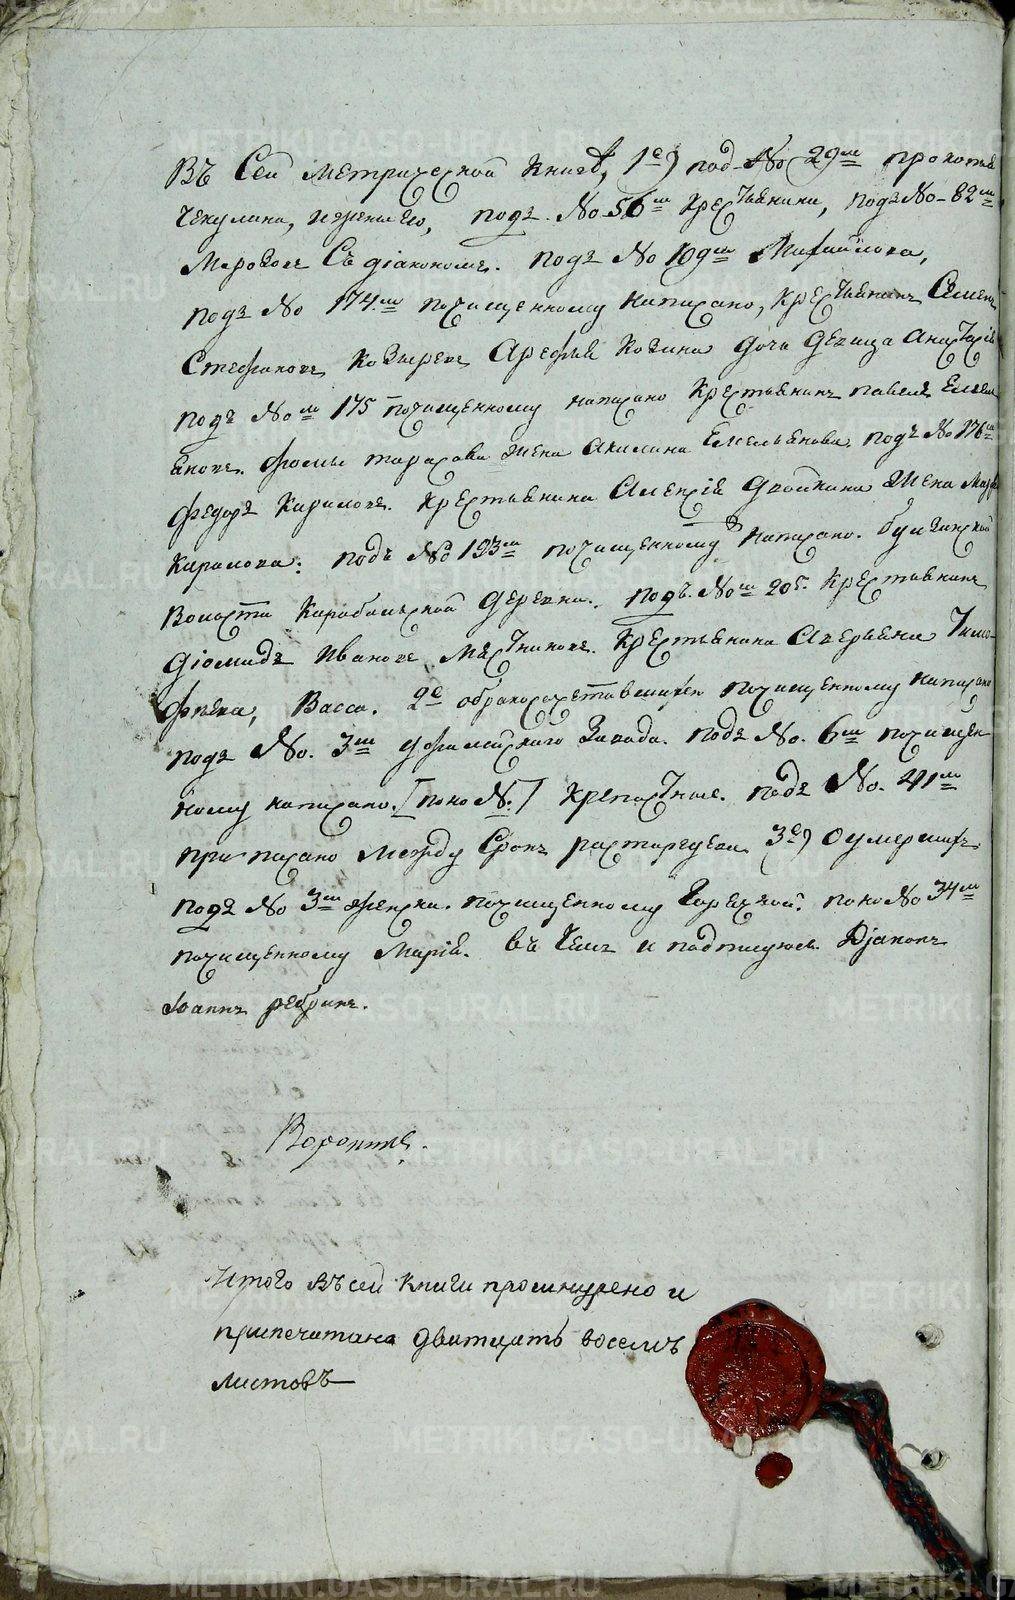 Въ Сей метрической книгѣ, 1е) под No 29м прокопья
Чекулина, и жены его, подъ No 56м крестьянина, подъ No 82м
Мировом Съ діакономъ. подъ No 109м Михайлова,
подъ No 174м почищенному написано, крестьянинъ Семенъ
Стефановъ Козыревъ Арефья Козина дочь девица Анастасія
подъ No м 175 почищенному написано Крестьянинъ павелъ Емель
яновъ. фомы тарасова жена Акилина Емельянова. подъ No 176м
Федоръ Кириловъ. Крестьянина Алексія Двойнина жена
Кирилова: подъ No 193м почищенному написано. буткинской
Волости Карабольской Деревни. подъ No м 205. Крестьянинъ
Діомидъ Ивановъ Крестьянина Аверьяна Тимо-
феева, Васса. 2е о бракосочетавшихся почищенному написано
подъ No. 3м уфалейскаго Завода. подъ No. 6м почищен
ному написано. [по ко №.] крепостные. подъ No. 41м
приписано между Строкъ расторгуева 3е) О умершихъ
подъ No 3м женска. почищенному по ко No 34м
почищенному Марія. въ чемъ и подписуюсь Діаконъ
Іоаннъ ребринъ.
Итого въ сей книги прошнурено и
припечатана дватцать восемъ
листовъ
METRIKI.GASO-URAL.RU